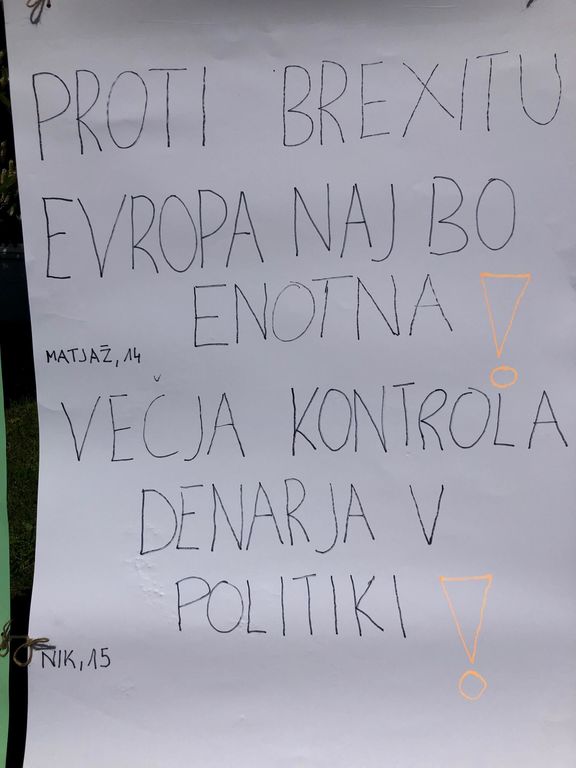 PROTI BREXITU
EVROPA NAJ BO
ENOTNA!
MATJAŽ, 14
VEČJA KONTROLA
DENARJA V
POLITIKI!
NIK, 15